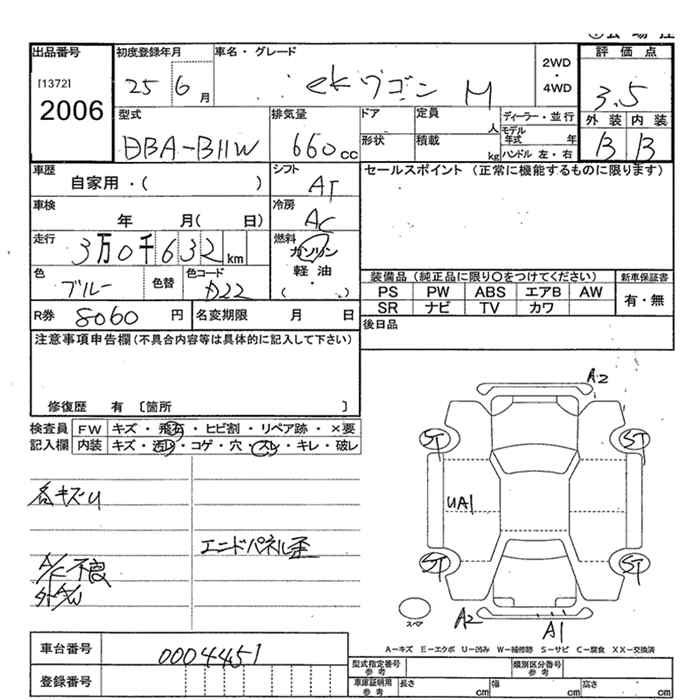 出品番号
[1372]
2006
初度登録年月
25 6 月
車名・グレード
ekワゴン M
2WD
・
4WD
評価点
3.5
外装 内装
B B
型式
DBA-B11W
排気量
660 cc
ドア
形状
定員 人
積載 kg
ディーラー・並行
モデル年式 年
ハンドル 左・右
車歴
自家用・( )
シフト
AT
車検
年 月( 日)
冷房
AC
走行
3万0千632 km
燃料
ガソリン
軽油
( ・ )
色
ブルー
色替
色コード
D22
R券 8060 円
名変期限 月 日
セールスポイント (正常に機能するものに限ります)
装備品 (純正品に限り○をつけてください)
PS PW ABS エアB AW
SR ナビ TV カワ
新車保証書
有・無
後日品
注意事項申告欄 (不具合内容等は具体的に記入して下さい)
修復歴 有 〔箇所 〕
検査員記入欄
FW キズ・飛石・ヒビ割・リペア跡・×要
内装 キズ・汚れ・コゲ・穴・スレ・キレ・破レ
各キズU
エンドパネル歪
A/C不良
A2
ST ST
UA1
ST ST
スペア
A2
A1
A−キズ E−エクボ U−凹み W−補修跡 S−サビ C−腐食 XX−交換済
車台番号
0004451
登録番号
型式指定番号 参考
類別区分番号 参考
車庫証明用 参考
長さ cm
幅 cm
高さ cm